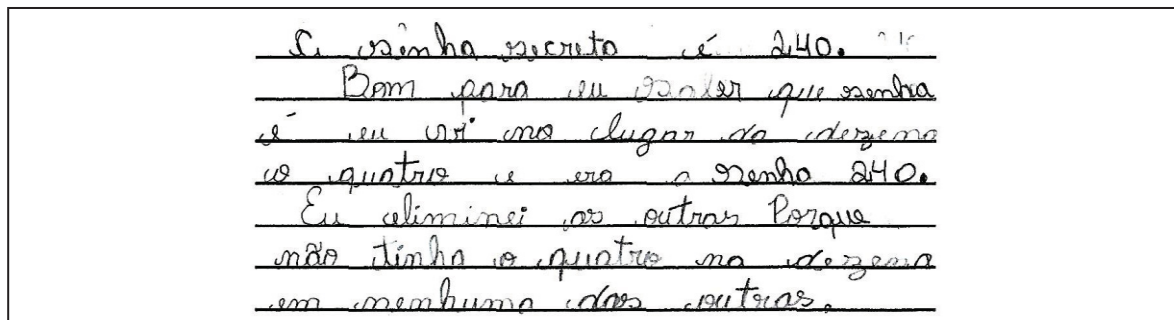 A senha secreta é 240.
Bom para eu saber que senha
é eu vi no lugar da dezena
o quatro e era a senha 240.
Eu eliminei as outras Porque
não tinha o quatro na dezena
em nenhuma das outras.